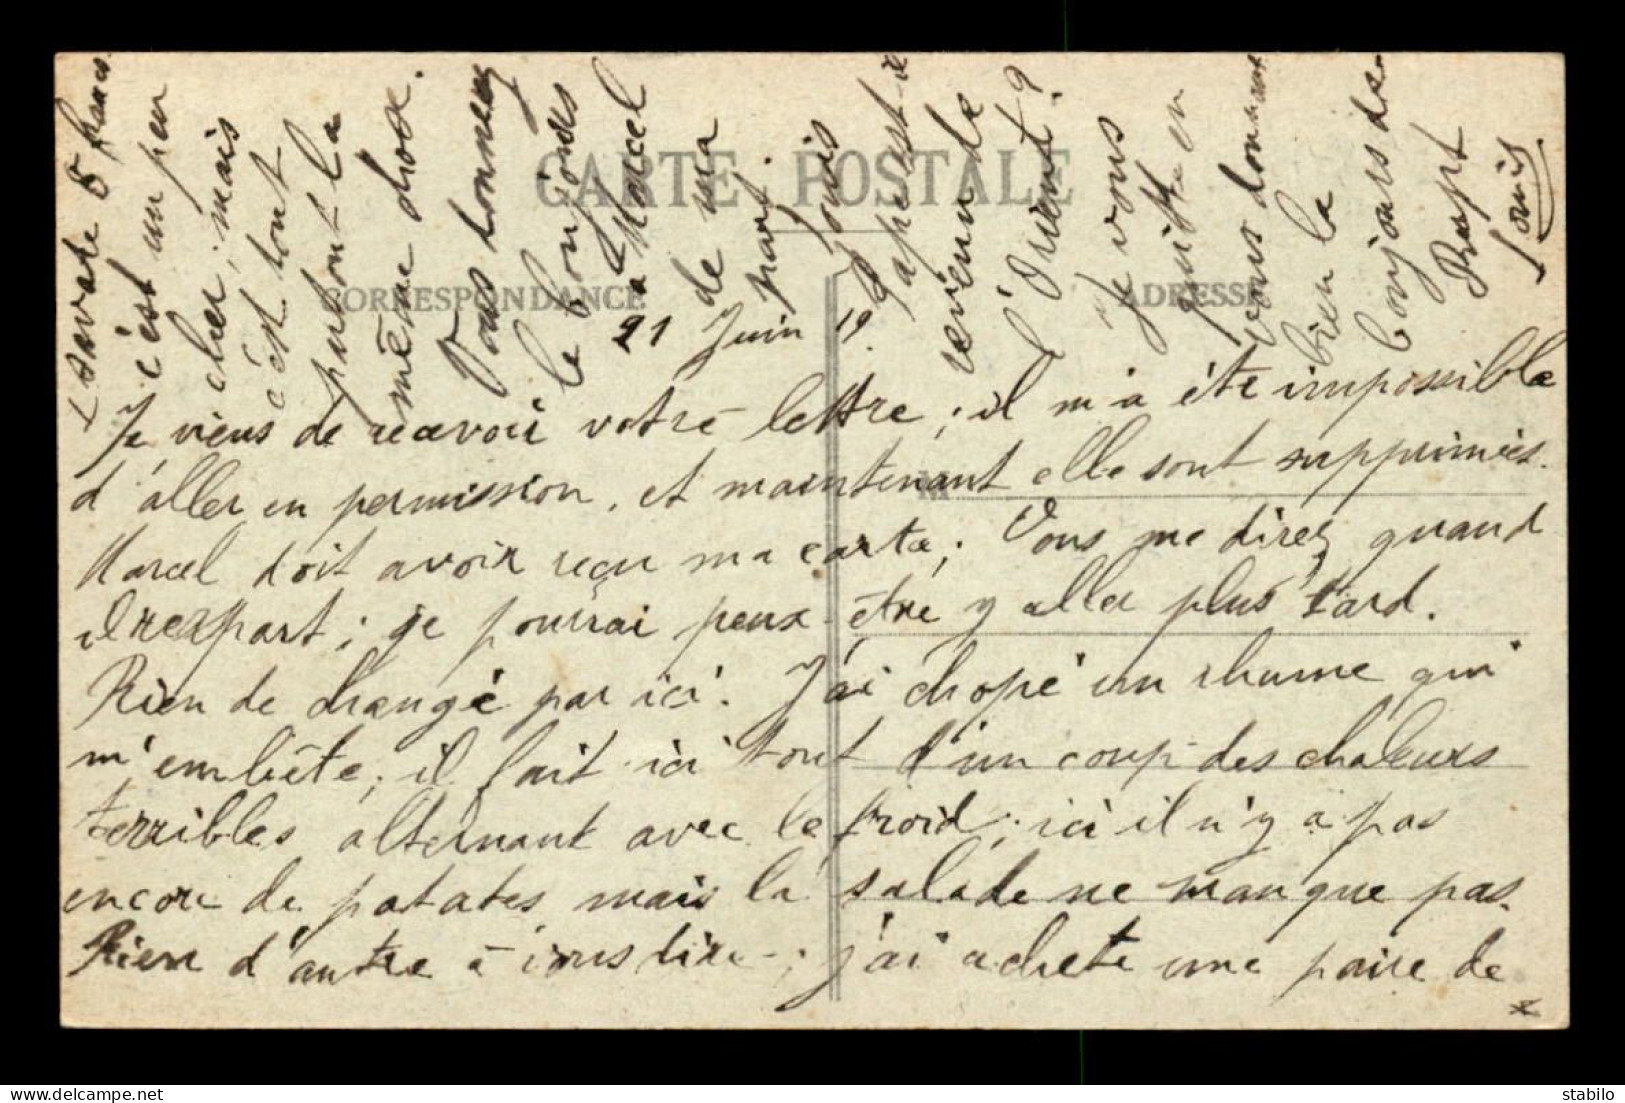 CARTE POSTALE
CORRESPONDANCE
ADRESSE
21 Juin 19
Je viens de recevoir votre lettre ; il m'a été impossible
d'aller en permission, et maintenant elle sont supprimées.
Marcel doit avoir reçu ma carte ; Vous me direz quand
il repart ; je pourrai peux-être y aller plus tard.
Rien de changé par ici. J'ai chopé un rhume qui
m'embête ; il fait ici tout d'un coup des chaleurs
terribles alternant avec le froid ; ici il n'y a pas
encore de patates mais la salade ne manque pas.
Rien d'autre à vous dire - ; j'ai acheté une paire de
x
x savate 8 francs
c'est un peu
cher ; mais
c'est tout
partout la
même chose.
Vous donnerez
le bonjour
à Marcel
de ma
part.
Louis
Papa est il
revenu de
l'Orient ?
Je vous
quitte en
vous donnant
bien le
bonjour
Louis
M
stabilo